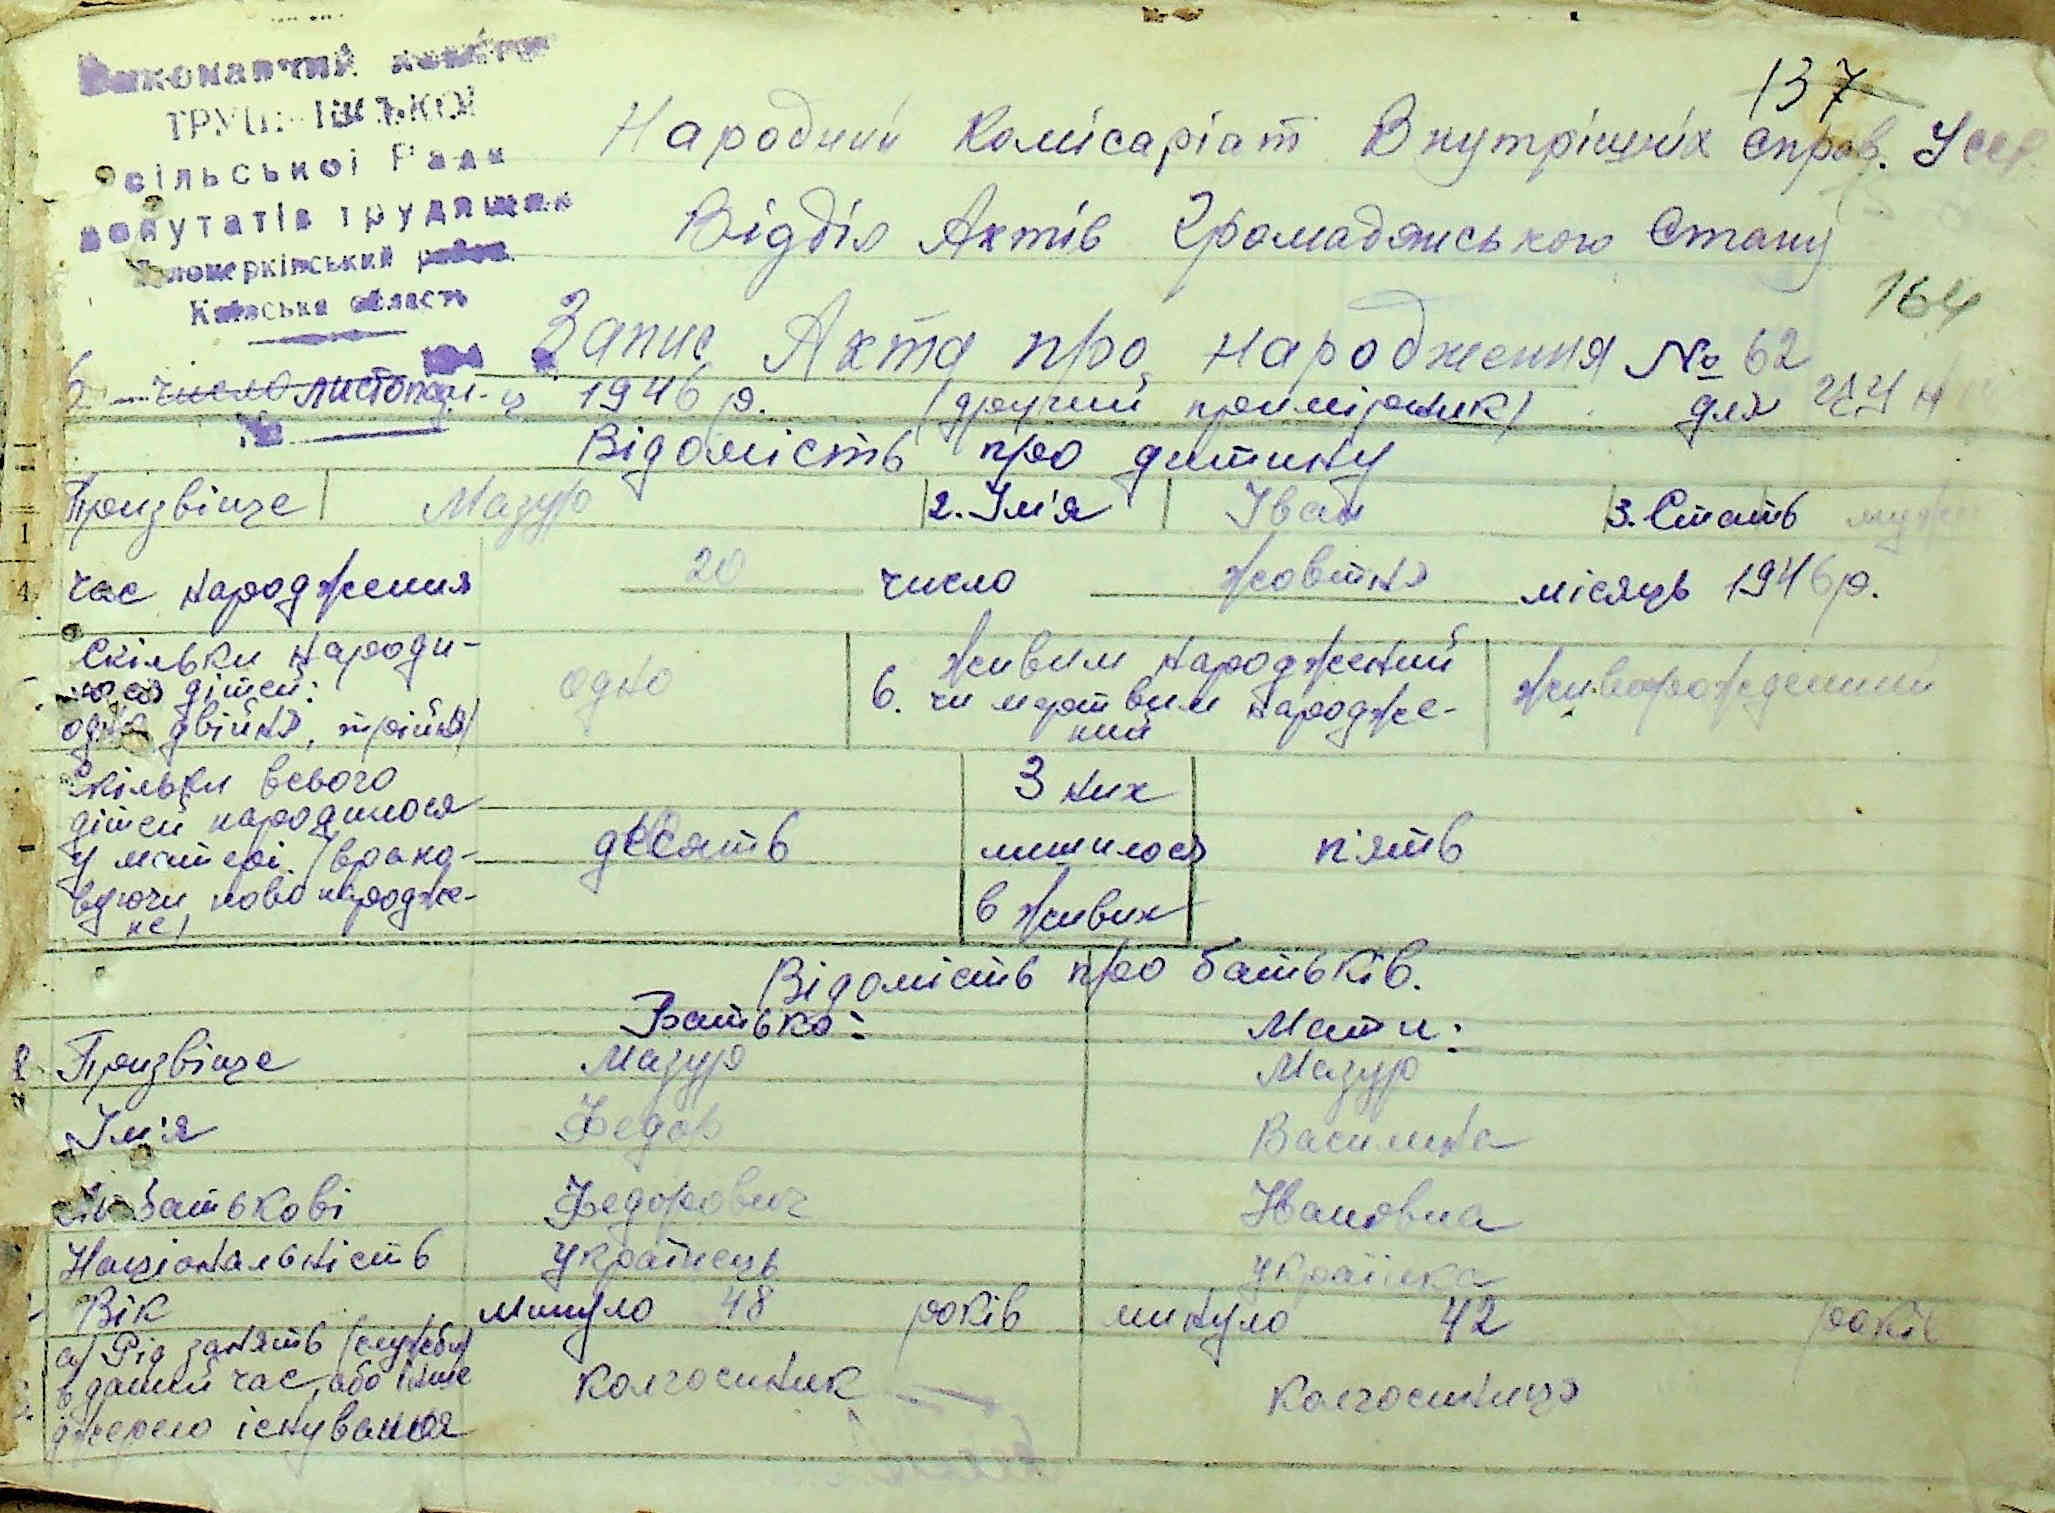 Виконавчий комітет
сільської Ради
депутатів трудящих
Білоцерківський район
Київська область
137
Народний Комісаріат Внутрішніх справ. Усср
Відділ Актів Громадянського Стану
164
Запис Акта про народження № 62
6 число листопада 1946 р. (другий примірник) для
Відомість про дитину
Призвіще Мазур 2. Ім'я Іван 3. Стать
1
4. час народження 20 число жовтня місяць 1946 р.
Скільки народи-
лося дітей:
одна двійня, трійня) одно
живим народжений
6. чи мертвим народже-
ний живорожденний
Скільки всього
дітей народилося
у матері (врахо-
вуючи ново народже-
не) десять
З них
лишилося
в живих п'ять
Відомість про батьків.
Батько: Мати:
Призвіще Мазур Мазур
Ім'я Федор Василина
По батькові Федорович Ивановна
Національність українець українка
Вік минуло 48 років минуло 42 років
а) Рід занять (служби)
в даний час, або інше
джерело існування колгоспник колгоспниця